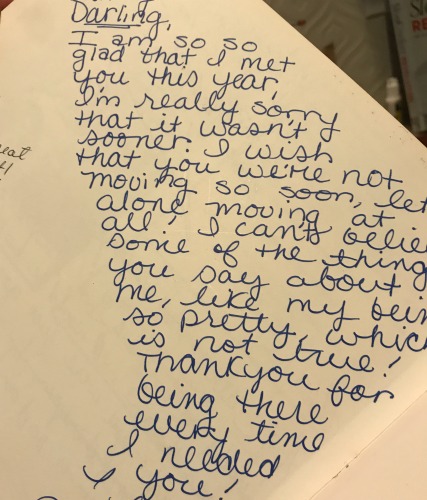 Darling,
I am so so
glad that I met
you this year,
I'm really sorry
that it wasn't
sooner. I wish
that you we're not
moving so soon, let
alone moving at
all! I can't belie
some of the thing
you say about
me, like my bein
so pretty, which
is not true!
Thankyou for
being there
every time
I needed
you!
eat